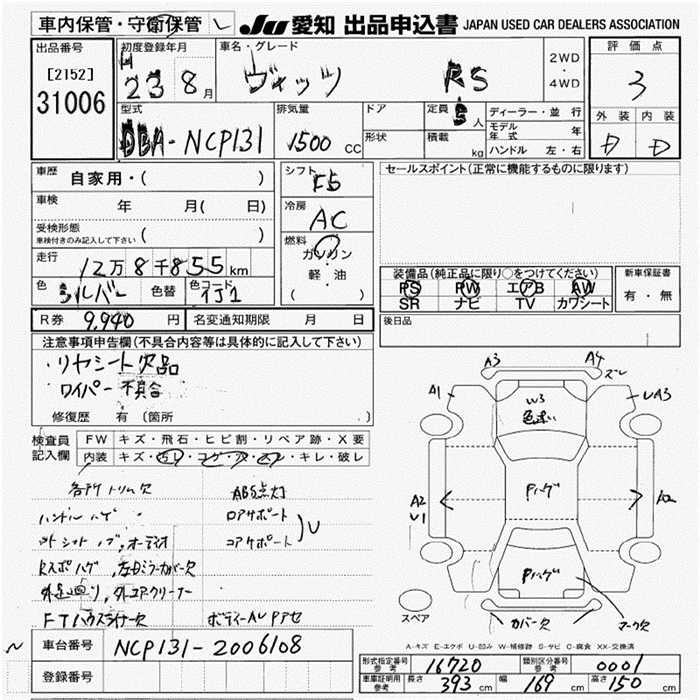 車内保管・守衛保管 レ JU 愛知 出品申込書 JAPAN USED CAR DEALERS ASSOCIATION
出品番号
[2152]
31006
初度登録年月
H 23 8月
車名・グレード
ヴィッツ RS
2WD
・
4WD
評価点
3
外装 内装
D D
型式
DBA-NCP131
排気量
1500 CC
ドア
形状
定員
5人
積載 kg
ディーラー・並行
モデル年式 年
ハンドル 左・右
車歴
自家用・( )
車検 年 月( 日)
受検形態
車検付きのみ記入して下さい ( )
走行
12万8千855km
色 シルバー 色替 色コード 1J1
シフト
F5
冷房
AC
燃料
ガソリン
軽・油
( )
セールスポイント(正常に機能するものに限ります)
装備品(純正品に限り○をつけてください)
PS PW エアB AW
SR ナビ TV カワシート
新車保証書
有・無
R券 9,940 円 名変通知期限 月 日
後日品
注意事項申告欄(不具合内容等は具体的に記入して下さい)
・リヤシート欠品
ワイパー不具合
修復歴 有 (箇所 )
検査員記入欄
FW キズ・飛石・ヒビ割・リペア跡・X要
内装 キズ・汚レ・コゲ・穴・ヌレ・キレ・破レ
各所トリム欠
ABS点灯
ハンドルハゲ
ロアサポート
コアサポート
U
Rスポハゲ、左ドミラーカバー欠
外エアクリーナー
FTハウスライナー欠
ボディーAUアセ
A3 A4
ズレ
A1
W3
色違い
UA3
A2
U1
Pハゲ
A2
Pハゲ
カバー欠
マーク欠
スペア
A-キズ E-エクボ U-凹み W-補修跡 S-サビ C-腐食 XX-交換済
車台番号 NCP131-2006108
登録番号
形式指定番号
参考
16720
類別区分番号
参考
0001
車庫証明用
参考
長さ 393 cm 幅 169 cm 高さ 150 cm